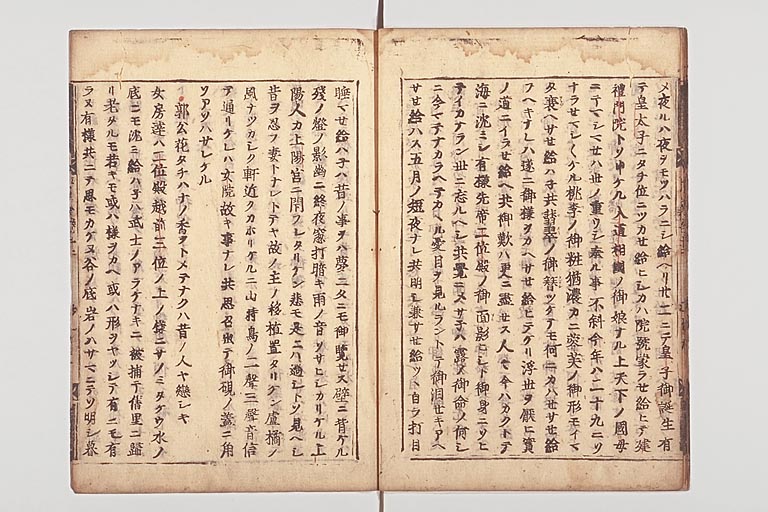 メ夜ルハ夜ヲモツハラニシ給ヘリ廿二ニテ皇子御誕生有
テ皇太子ニタチ位ニツカせ給ヒシカハ院號蒙ラせ給ヒテ建
禮門院トソ申ケル入道相國ノ御娘ナル上天下ノ國母
ニテマシマせハ世ノ重ウシ奉ル事不斜今年ハ二十九ニソ
ナラせマシ〱ケル桃李ノ御粧猶濃カニ芙蓉ノ御形モイマ
タ衰ヘサせ給ハ子共翡翠ノ御簪ツケテモ何ニカハせサせ給
フヘキナレハ遂ニ御様ヲカヘサせ給ヒテケリ浮世ヲ厭ヒ實
ノ道ニイラせ給ヘ共御歎ハ更ニ盡せス人々今ハカクトテ
海ニ沈ミシ有様先帝二位殿ノ御面影ヒシト御身ニソヒ
テイカナラン世ニ忘ルヘシ共覺ニスサテハ露ノ御命ノ何シ
ニ今マテナカラヘテカヽル憂目ヲ見ルラントテ御泪せキアヘ
サせ給ハス五月ノ短夜ナレ共明シ兼サせ給ツヽ自ラ打目
睡マせ給ハ子ハ昔ノ事ヲハ夢ニタニモ御覽せス壁ニ背ケル
殘ノ燈ノ影幽ニ終夜窓打暗キ雨ノ音ソサヒシカリケル上
陽人カ上陽宮ニ閉ラレタリケン悲モ是ニハ過シトソ見ヘシ
昔ヲ忍フ妻トナレトテヤ故ノ主ノ移植置タリケン盧橘ノ
風ナツカシク軒近クカホリケルニ山時鳥ノ二聲三聲音信
テ通リケレハ女院故キ事ナレ共思召出テ御硯ノ蓋ニ角
ソアソハサレケル
郭公花タチハナノ香ヲトメテナクハ昔ノ人ヤ戀シキ
女房達ハ二位殿越前三位ノ上ノ様ニサノミタケウ水ノ
底ニモ沈ミ給ハ子ハ武士ノアラケナキニ被捕テ舊里ニ歸
リ老タルモ若キモ或ハ様ヲカヘ或ハ形ヲヤツシテ有ニモ有
ラヌ有様共ニテ思モカケヌ谷ノ底岩ノハサマニテソ明シ暮